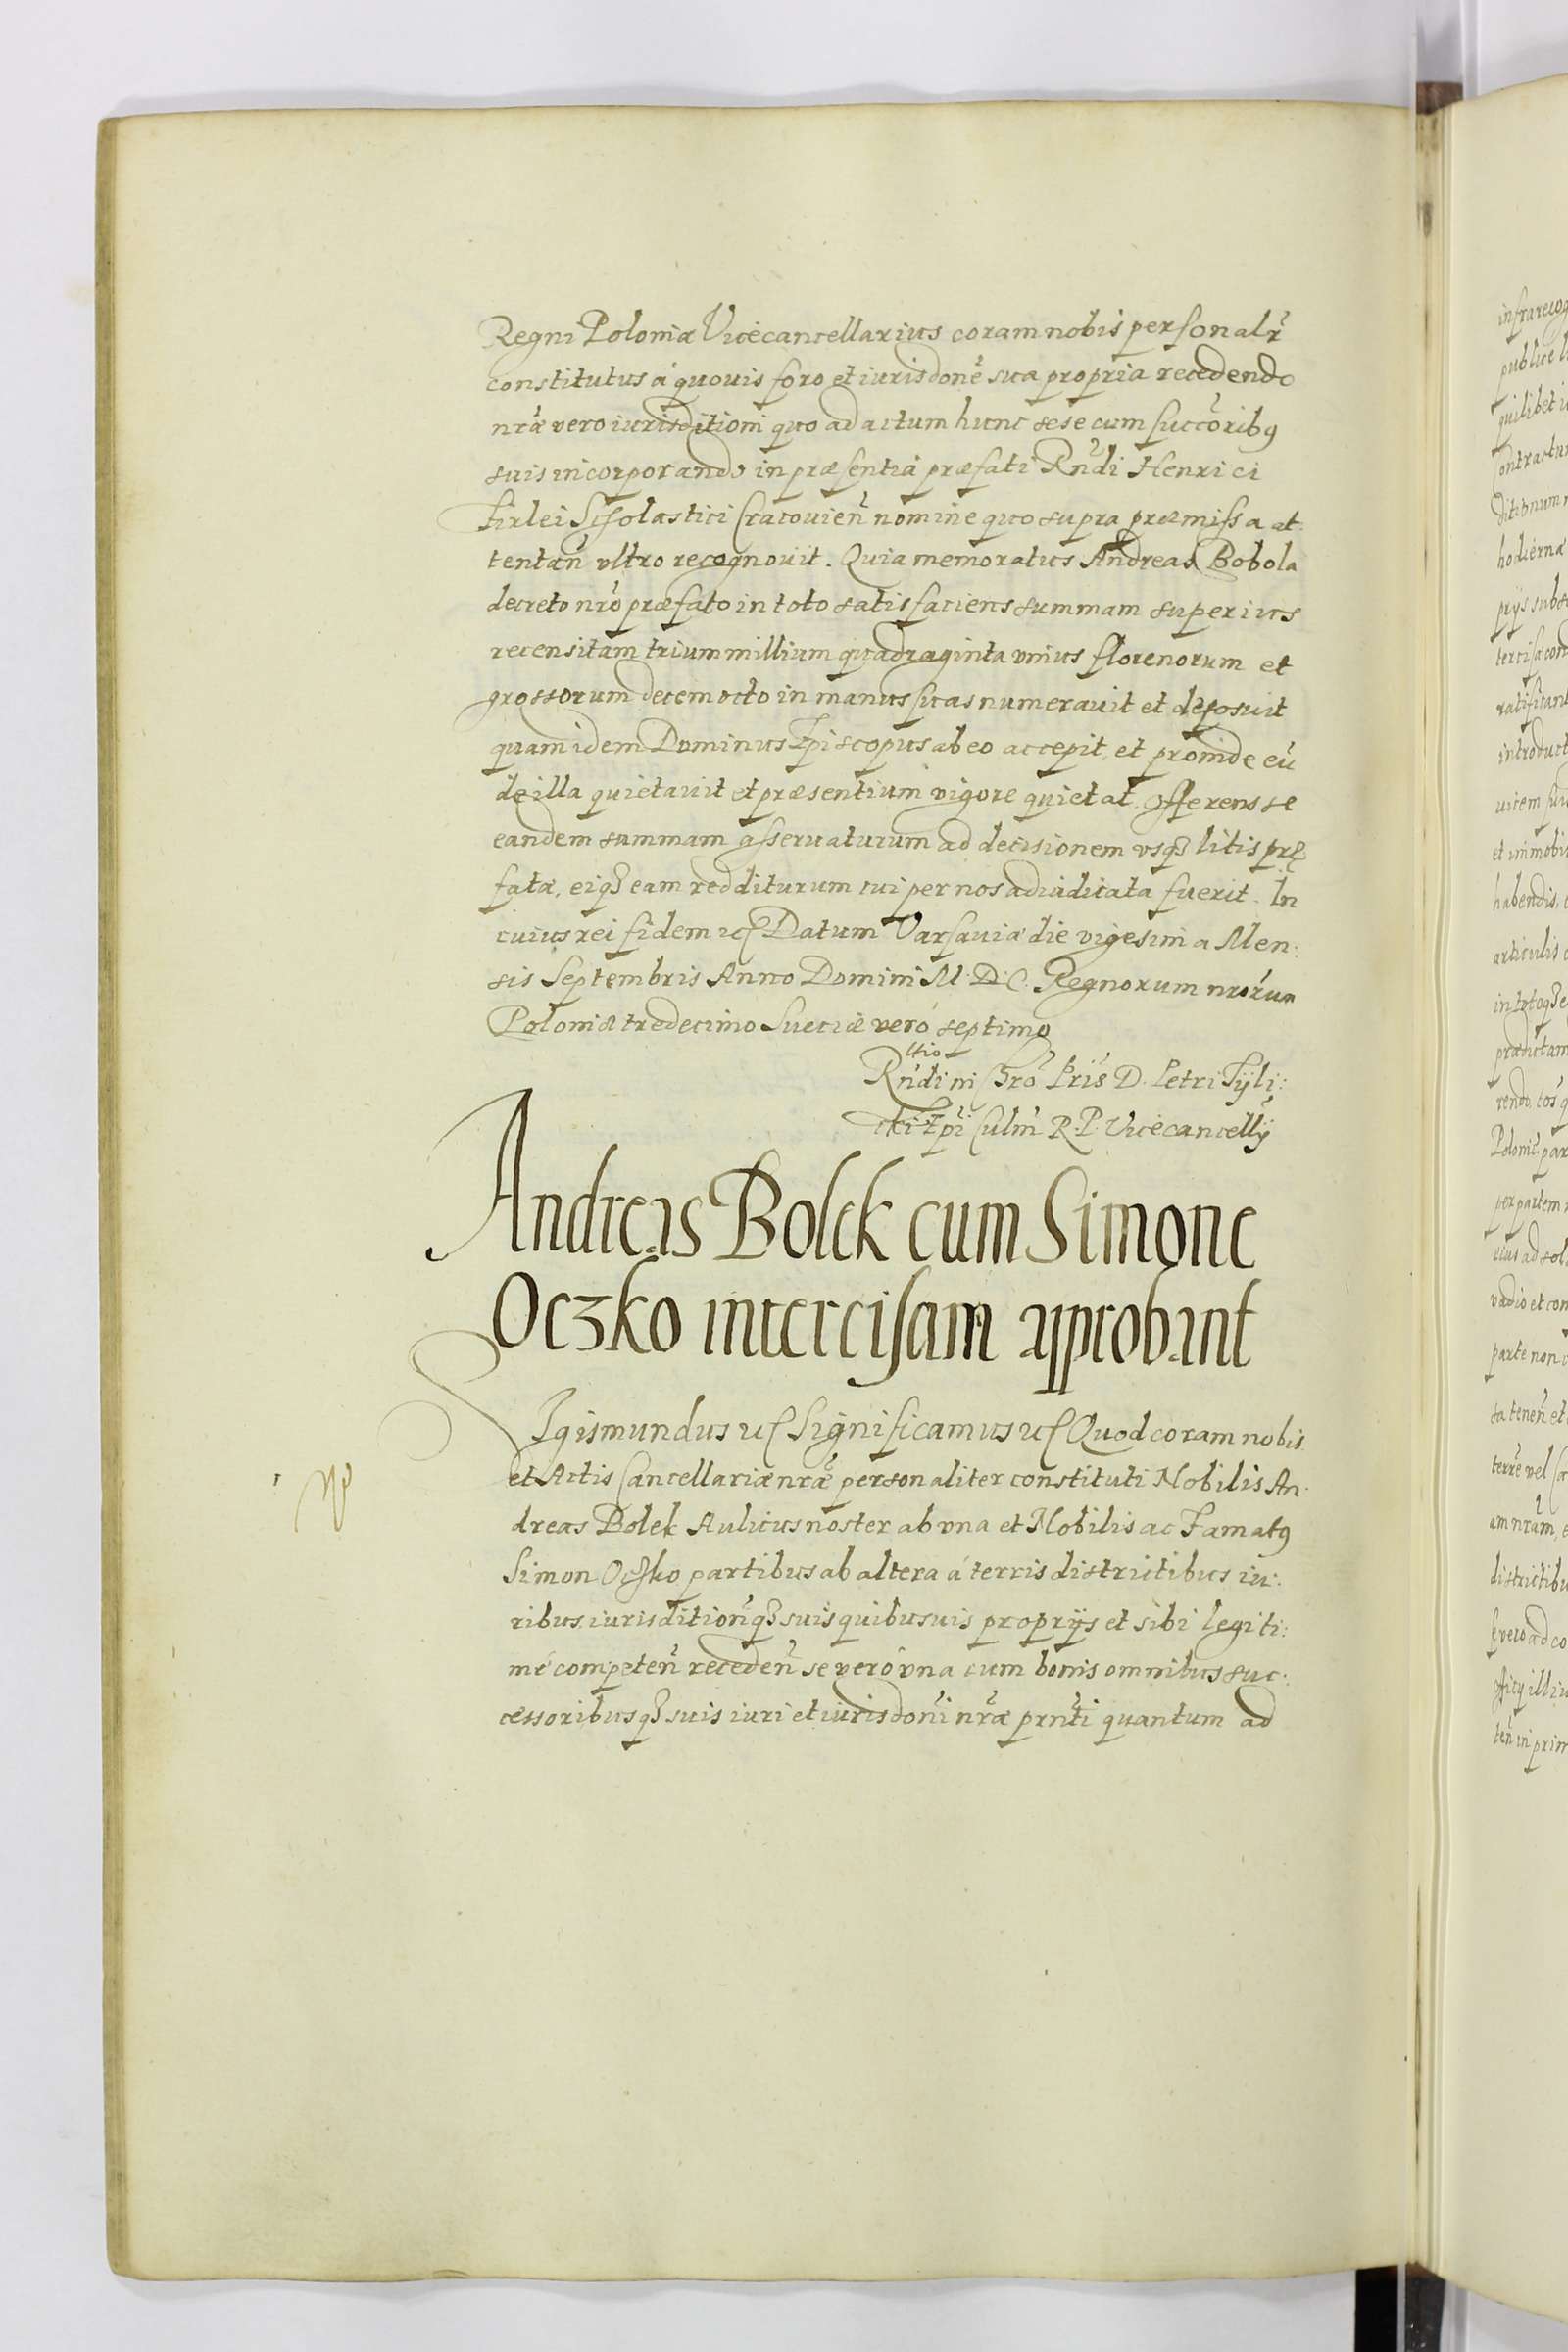 Regni Poloniæ Vicecancellarius coram nobis personalr̃
constitutus á quouis foro et iurisdonẽ sua propria recedendo
nr̃æ vero iurisditioni quo ad actum hunc sese cum succoribq
suis incorporando in præsentia præfati Rñdi Henrici
Firlei Scholastici Cracouieñ nomine quo supra præmissa at:
tentañ vltro recognouit. Quia memoratus Andreas Bobola
decreto nrõ præfato in toto satisfaciens summam superius
recensitam trium millium quadraginta vnius florenorum et
grossorum decem octo in manus suas numerauit et deposuit
quam idem Dominus Episcopus ab eo accepit, et proinde eũ
de illa quietauit et præsentium vigore quietat. Offerens se
eandem summam asseruaturum ad decisionem vsq3 litis præ
fatæ, eiq3 eam redditurum cui per nos adiudicata fuerit. In
cuius rei fidem etc Datum Varsauiæ die vigesima Men:
sis Septembris Anno Domini M. D. C. Regnorum nrõrum
Poloniæ tredecimo Sueciæ veró septimo
Rltio
Rñdi in Chrõ Pris D. Petri Tyli:
cki Epĩ Culm̃ R. P. Vicecancellÿ
Andreas Bolek cum Simone
Oczko intercisam approbant
SIgismundus etc Significamus etc Quod coram nobis
et Actis Cancellariæ nr̃æ personaliter constituti Nobilis An:
dreas Bolek Aulicus noster ab vna et Nobilis ac Famatq
Simon Oczko partibus ab altera á terris districtibus iu:
ribus iurisditioñq3 suis quibusuis proprÿs et sibi legiti:
mé competeñ recedeñ se veró vna cum bonis omnibus suc:
cessoribusq3 suis iuri et iurisdonĩ nr̃æ prñti quantum ad